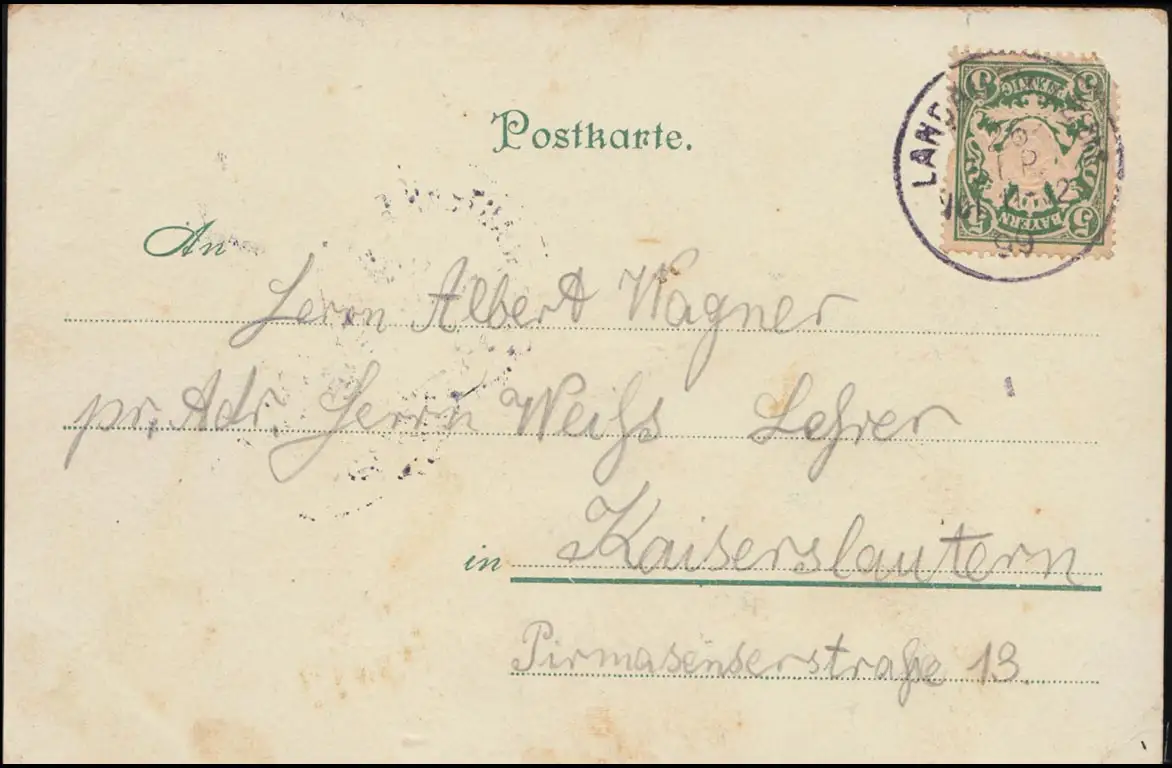 Postkarte.
An
Herrn Albert Wagner
pr. Adr. Herrn Weihs Lehrer
in Kaiserslautern
Pirmasenserstraße 13.
5 5
PFENNIG
BAYERN
5 5
99